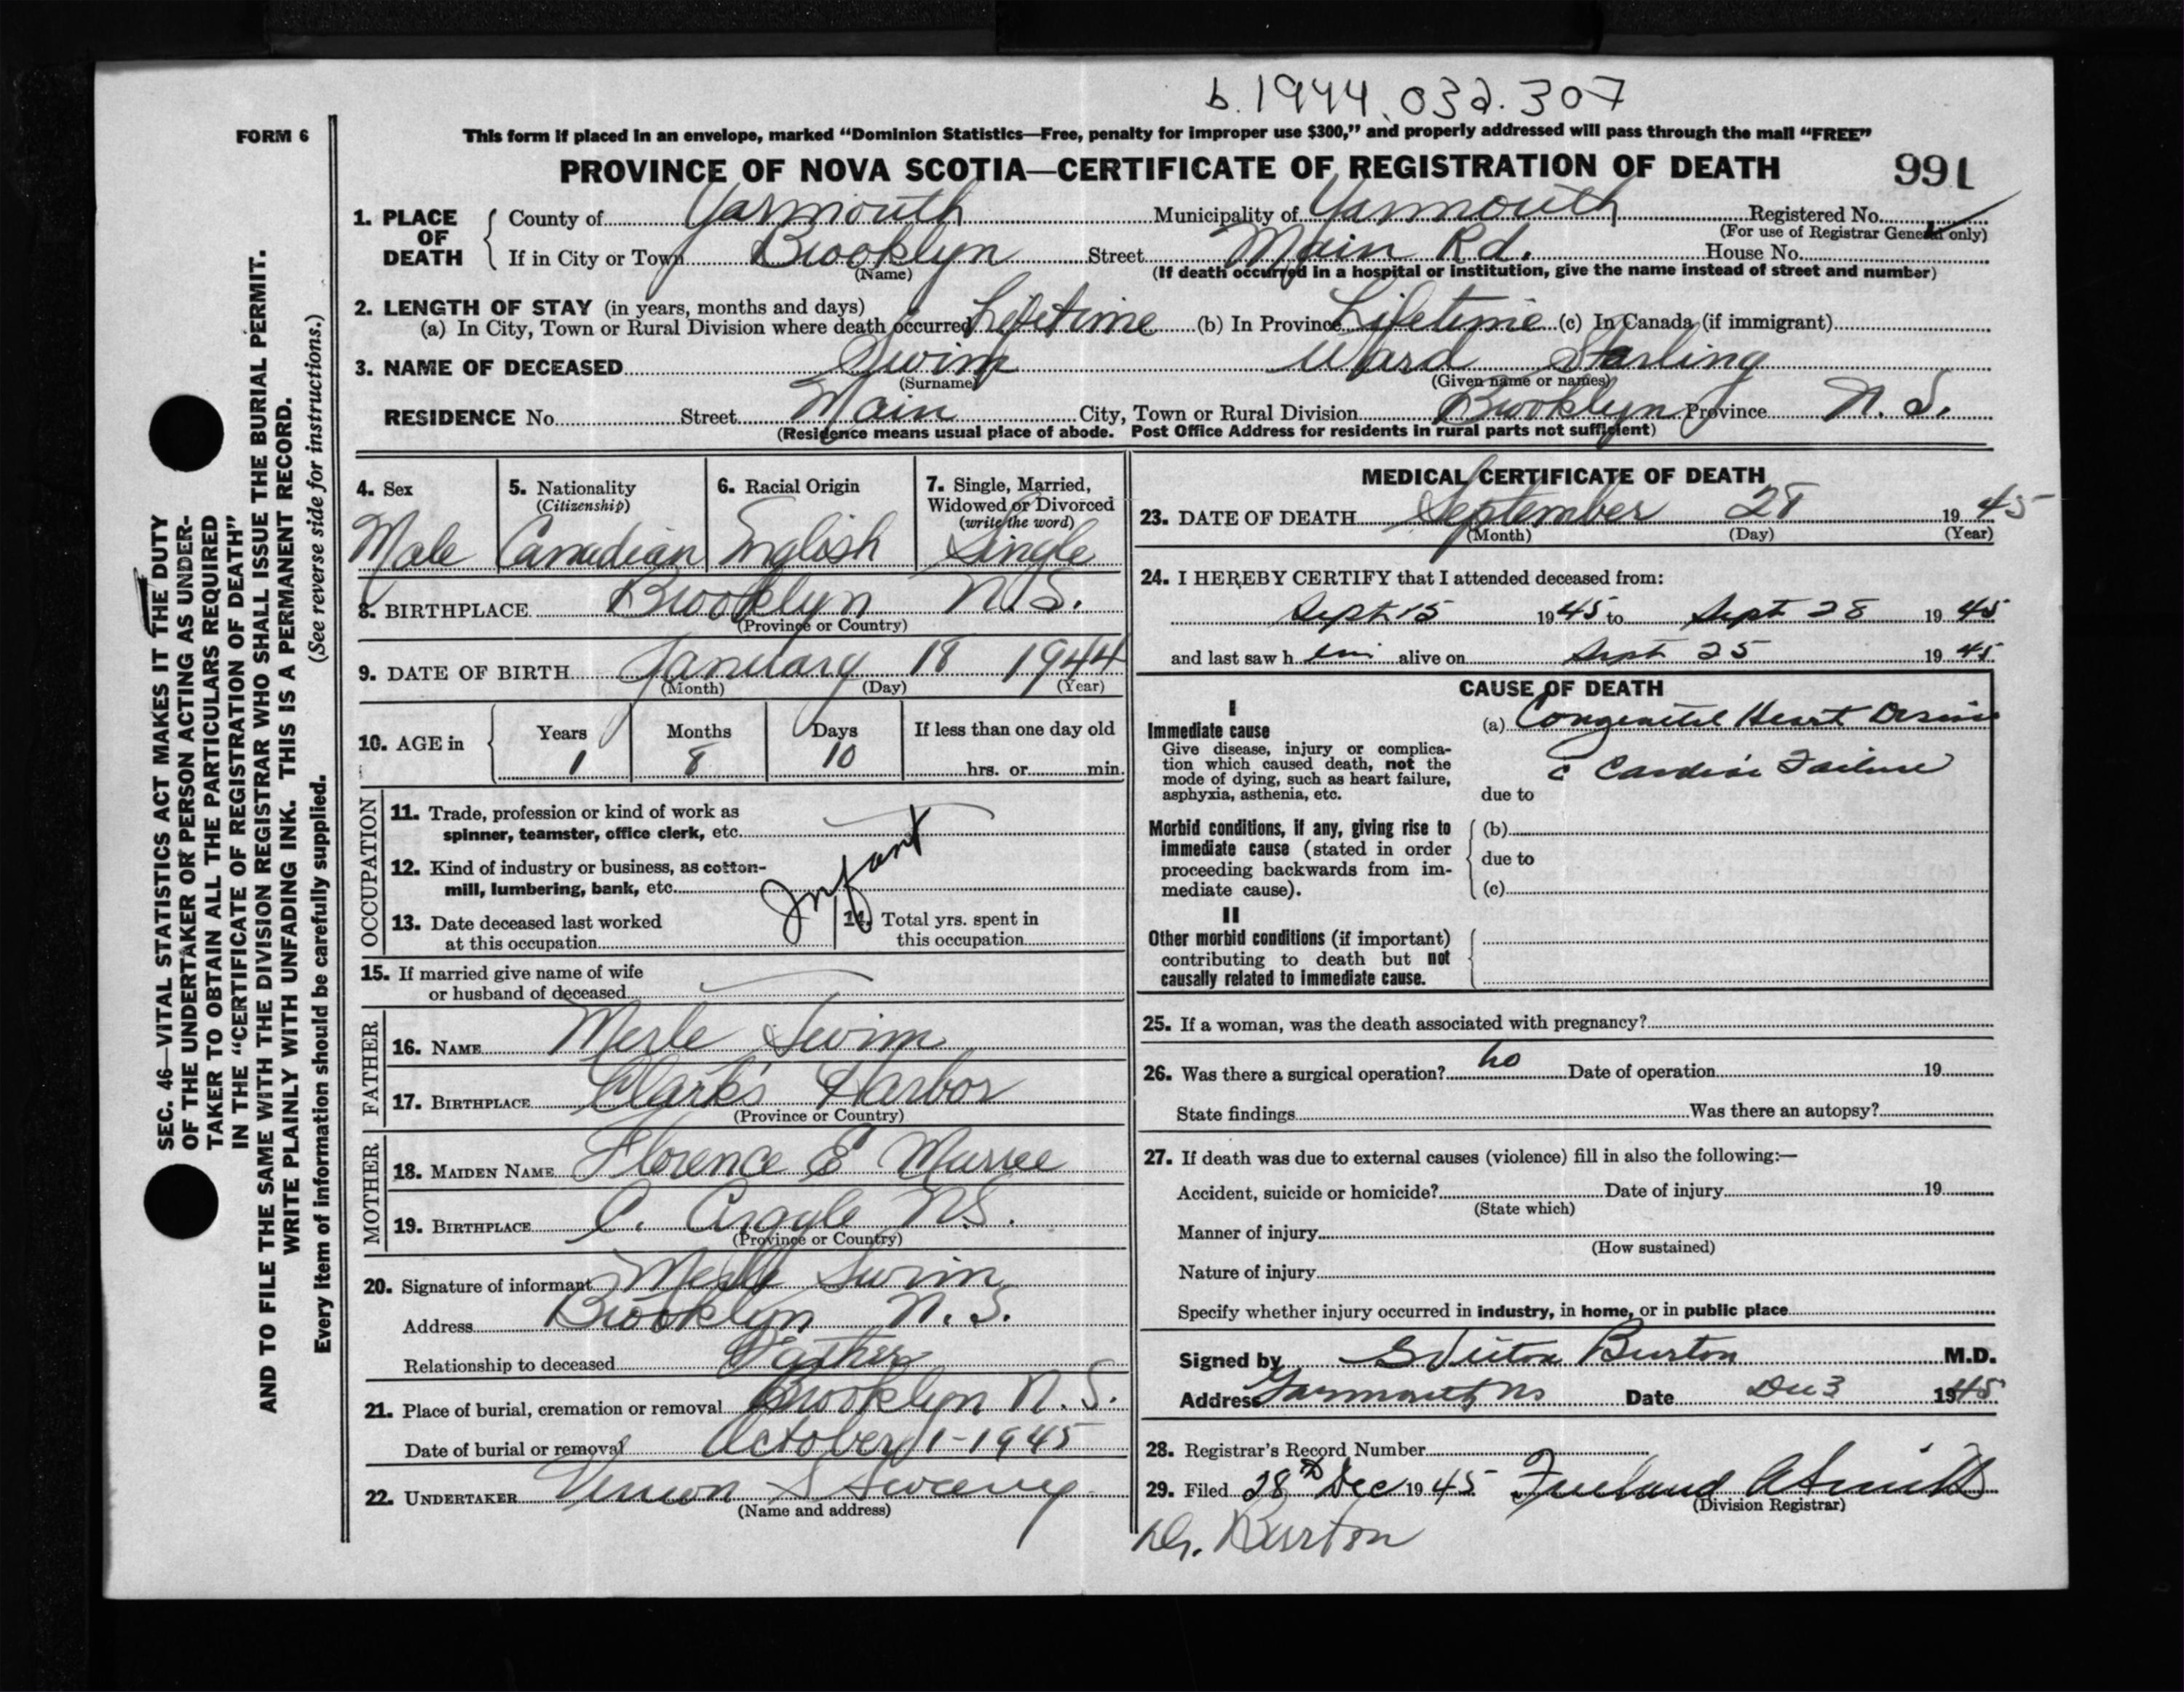 b. 1944.032.307
FORM 6
This form if placed in an envelope, marked “Dominion Statistics—Free, penalty for improper use $300,” and properly addressed will pass through the mail “FREE”
PROVINCE OF NOVA SCOTIA—CERTIFICATE OF REGISTRATION OF DEATH 991
1. PLACE OF DEATH County of Yarmouth Municipality of Yarmouth Registered No.
(For use of Registrar General only)
If in City or Town Brooklyn Street Main Rd. House No.
(Name) (If death occurred in a hospital or institution, give the name instead of street and number)
2. LENGTH OF STAY (in years, months and days)
(a) In City, Town or Rural Division where death occurred Lifetime (b) In Province Lifetime (c) In Canada (if immigrant)
3. NAME OF DECEASED Swim Ward Starling
(Surname) (Given name or names)
RESIDENCE No. Street Main City, Town or Rural Division Brooklyn Province N. S.
(Residence means usual place of abode. Post Office Address for residents in rural parts not sufficient)
4. Sex
Male
5. Nationality
(Citizenship)
Canadian
6. Racial Origin
English
7. Single, Married,
Widowed or Divorced
(write the word)
Single
8. BIRTHPLACE Brooklyn N.S.
(Province or Country)
9. DATE OF BIRTH January 18 1944
(Month) (Day) (Year)
10. AGE in Years Months Days If less than one day old
1 8 10 hrs. or min.
OCCUPATION
11. Trade, profession or kind of work as
spinner, teamster, office clerk, etc.
12. Kind of industry or business, as cotton-
mill, lumbering, bank, etc.
Infant
13. Date deceased last worked
at this occupation
14. Total yrs. spent in
this occupation
15. If married give name of wife
or husband of deceased
FATHER
16. NAME Merle Swim
17. BIRTHPLACE Clark's Harbor
(Province or Country)
MOTHER
18. MAIDEN NAME Florence E
19. BIRTHPLACE C. Argyle N.S.
(Province or Country)
20. Signature of informant Merle Swim
Address Brooklyn N. S.
Relationship to deceased Father
21. Place of burial, cremation or removal Brooklyn N. S.
Date of burial or removal October 1-1945
22. UNDERTAKER Vernon S Sweeny
(Name and address)
MEDICAL CERTIFICATE OF DEATH
23. DATE OF DEATH September 28 1945
(Month) (Day) (Year)
24. I HEREBY CERTIFY that I attended deceased from:
Sept 15 1945 to Sept 28 1945
and last saw him alive on Sept 25 1945
CAUSE OF DEATH
I
Immediate cause
Give disease, injury or complica-
tion which caused death, not the
mode of dying, such as heart failure,
asphyxia, asthenia, etc.
(a) Congenital Heart Disease
c Cardiac Failure
due to
Morbid conditions, if any, giving rise to
immediate cause (stated in order
proceeding backwards from im-
mediate cause).
(b)
due to
(c)
II
Other morbid conditions (if important)
contributing to death but not
causally related to immediate cause.
25. If a woman, was the death associated with pregnancy?
26. Was there a surgical operation? no Date of operation 19
State findings Was there an autopsy?
27. If death was due to external causes (violence) fill in also the following:—
Accident, suicide or homicide? Date of injury 19
(State which)
Manner of injury
(How sustained)
Nature of injury
Specify whether injury occurred in industry, in home, or in public place
Signed by Burton M.D.
Address Yarmouth NS Date Dec 3 1945
28. Registrar's Record Number
29. Filed 28th Dec 1945 Freeland A Smith
(Division Registrar)
Dr. Burton
SEC. 46—VITAL STATISTICS ACT MAKES IT THE DUTY
OF THE UNDERTAKER OR PERSON ACTING AS UNDER-
TAKER TO OBTAIN ALL THE PARTICULARS REQUIRED
IN THE “CERTIFICATE OF REGISTRATION OF DEATH”
AND TO FILE THE SAME WITH THE DIVISION REGISTRAR WHO SHALL ISSUE THE BURIAL PERMIT.
WRITE PLAINLY WITH UNFADING INK. THIS IS A PERMANENT RECORD.
Every item of information should be carefully supplied. (See reverse side for instructions.)